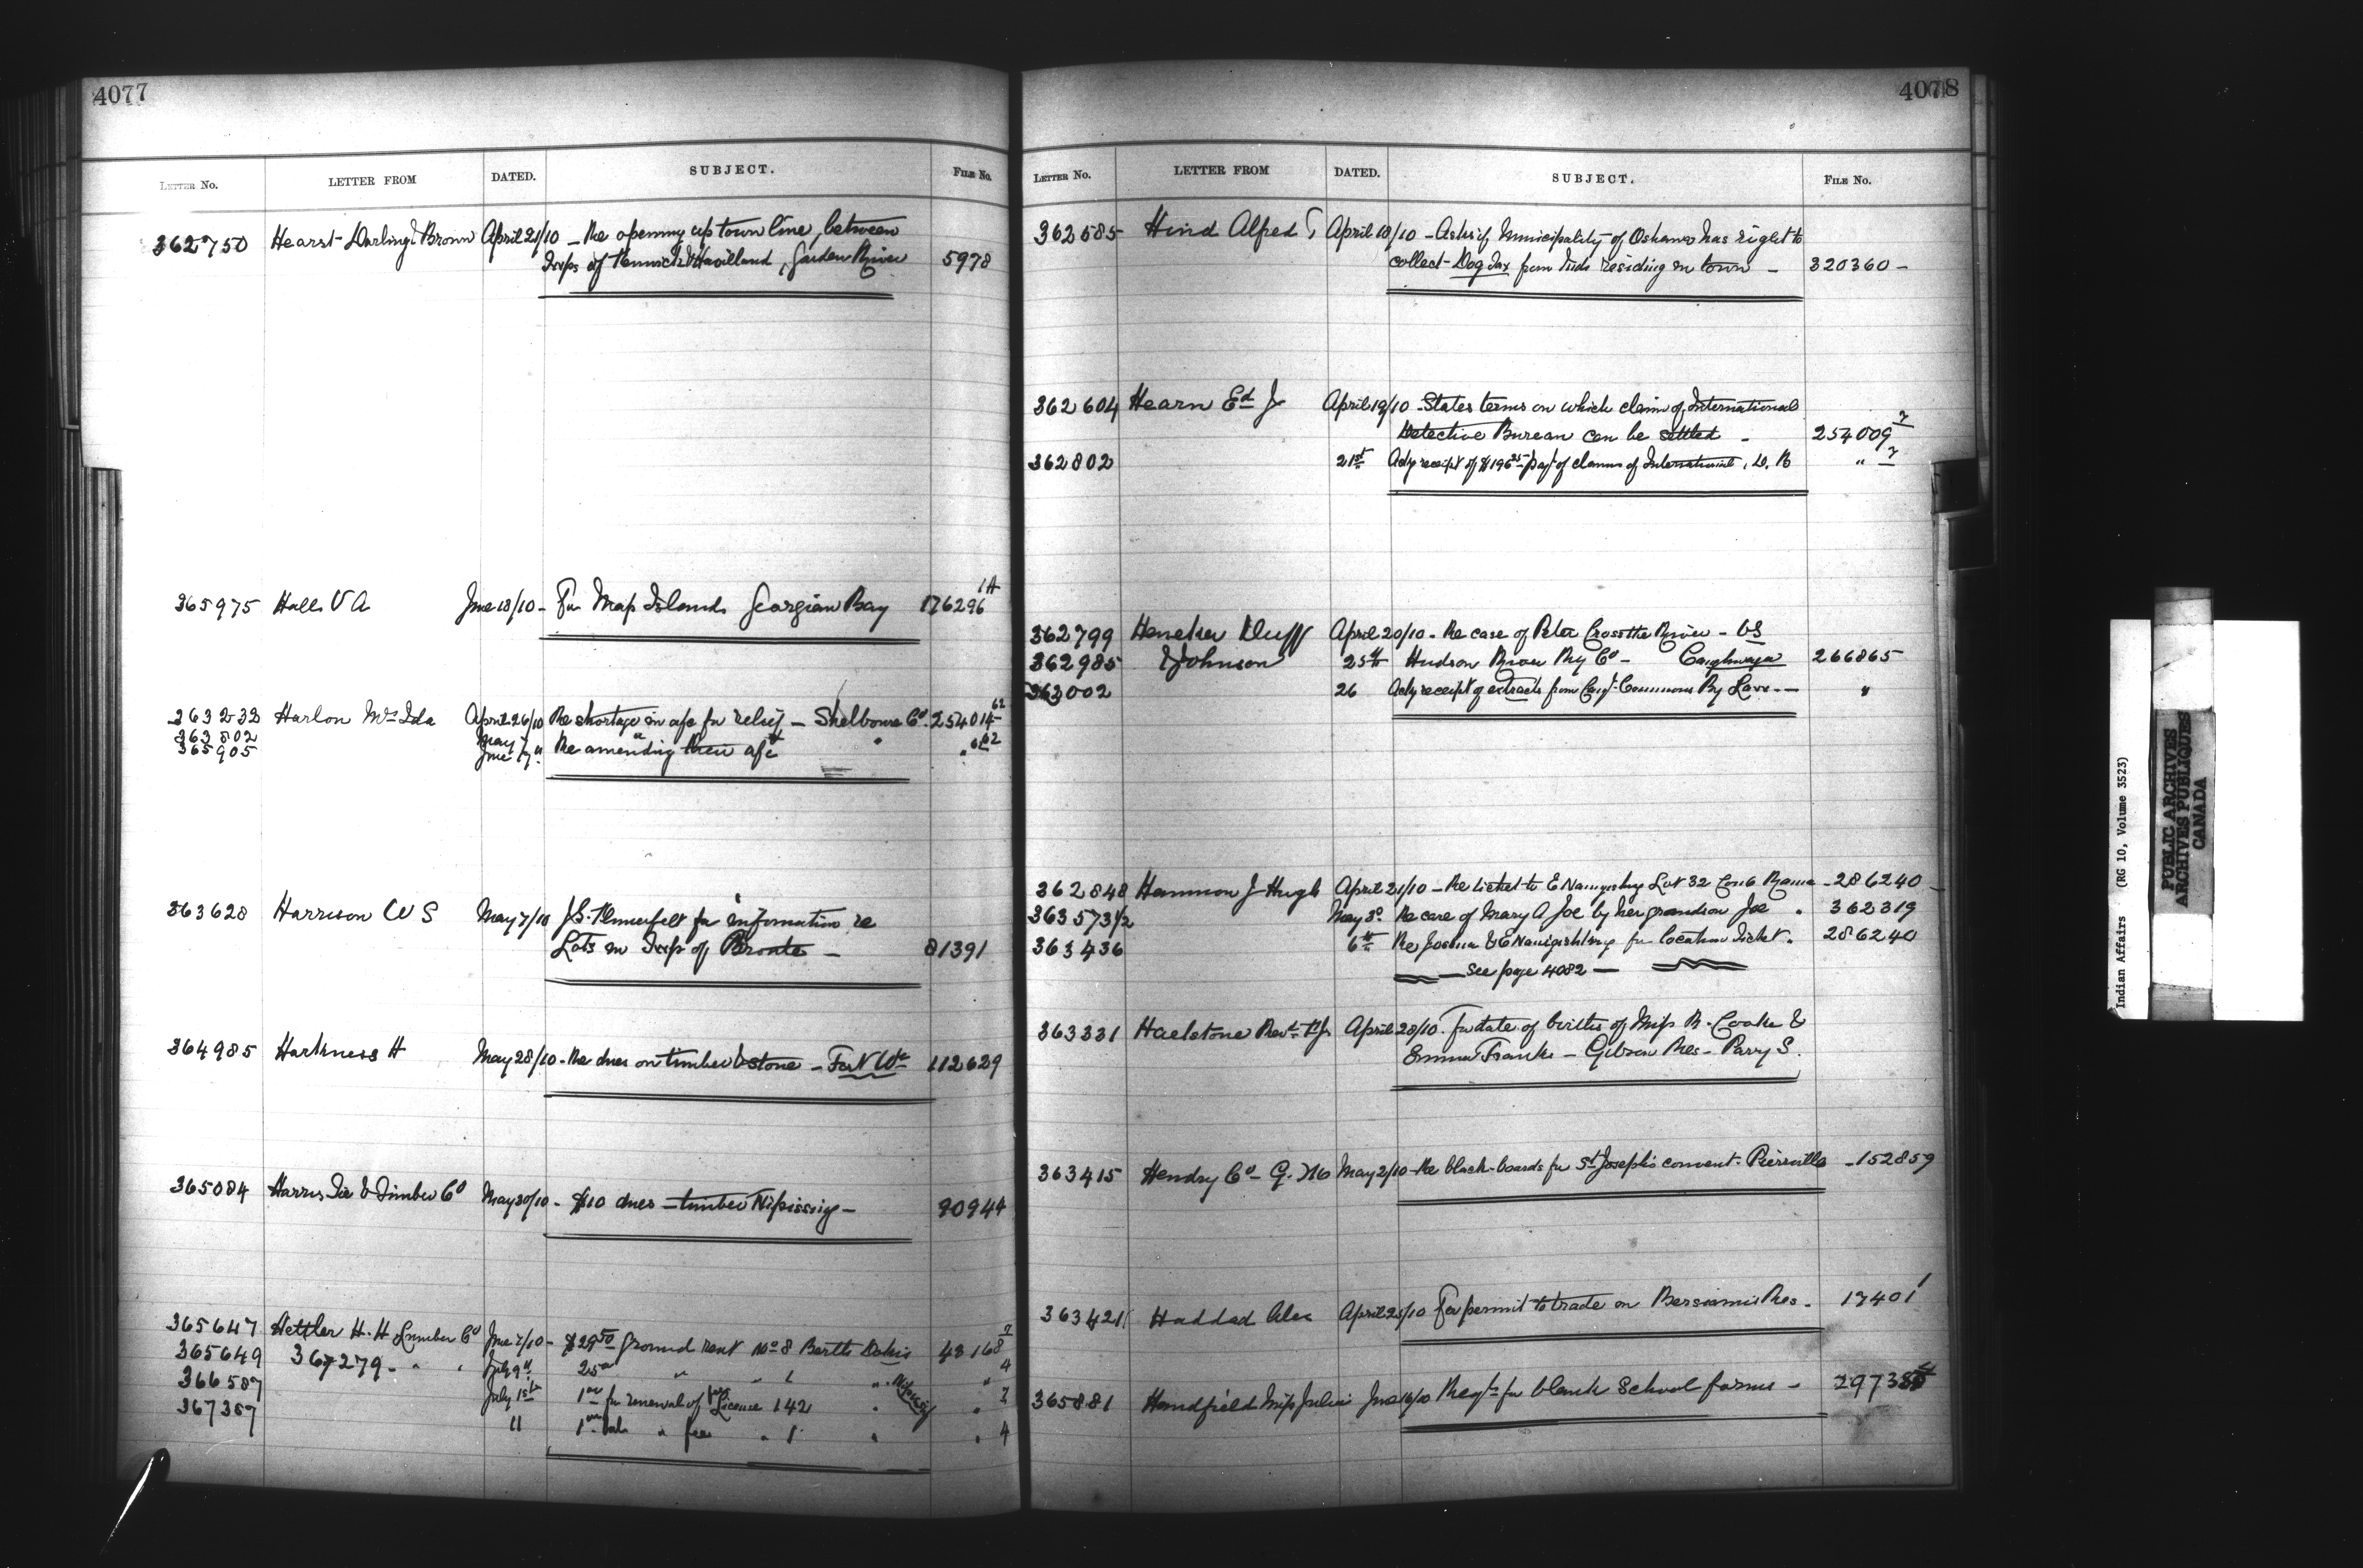 4077
LETTER No. LETTER FROM DATED. SUBJECT. FILE No.
362750 Hearst Darling & Brown April 21/10 — Re opening up town line, between
Twps of Kenwick & Havilland, Garden River 5978
365975 Halls V A June 18/10 - For Map Islands Georgian Bay 176296 1A
363232 Harlon Mrs Ida April 26/10 Re shortage in a/c for relief — Shelbourne Co. 254014 62
363802 May 7 "
365905 June 17 " Re amending their a/c " " 62
363628 Harrison W S May 7/10 J.S. for information re
Lots in Twp of Bronte — 81391
364985 Harkness H May 28/10 - Re dues on timber & stone — Fort Wm 112629
365084 Harris Tie & Timber Co May 30/10 - $10 dues — timber Nipissing — 90944
365647 Hettler H. H Lumber Co June 7/10 - $29.50 ground rent No 8 Berth Dokis 43168 7
365649 367279 - " " July 9th 25 " " " " 4
366587 July 1st 1 for renewal of Licence 142 " Nipissing " 7
367387 11 1 bal. " fee " 1 " " 4
4078
LETTER No. LETTER FROM DATED. SUBJECT. FILE No.
362585 Hind Alfred T April 18/10 - Asks if Municipality of Oshawa has right to
collect Dog Tax from Inds residing in town — 320360 -
362604 Hearn Ed J April 19/10 - States terms on which claim of International
Detective Bureau can be settled - 254009 7
362802 21st Ack receipt of $196 25 payt of claims of International, D. B " 7
362799 Heneker Duff April 20/10 - Re case of Peter Cross the River - VS
362985 & Johnson 25th Hudson River Ry Co - Caughnwaga 266865
363002 26 Ack receipt of extracts from Common By Laws - — "
362848 Hammon J Hugh April 21/10 — Re ticket to E Naingishkung Lot 32 Con 6 Rama - 286240 -
363573 1/2 May 3d Re care of Mary A Joe by her grandson Joe . 362319
363436 6th Re Joshua & E Naingishkung for location Ticket. 286240
— See page 4082 —
363331 Haelstone Revd April 28/10. For date of births of Miss R. Cooke &
Emma Franks — Gibson Res - Parry S.
363415 Hendry Co - G. M May 2/10 - Re black-boards for St Joseph's convent. Pierreville - 152859
363421 Haddad Alex April 25/10 For permit to trade on Bersiamis Res. 17401 1
365881 Handfield Miss Julia June 16/10 Reqt for blank School forms -
Indian Affairs (RG 10, Volume 3523)
PUBLIC ARCHIVES
ARCHIVES PUBLIQUES
CANADA